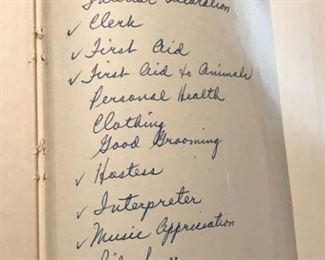 Interior Decoration
✓ Clerk
✓ First Aid
✓ First Aid to Animals
Personal Health
Clothing
Good Grooming
✓ Hostess
✓ Interpreter
✓ Music Appreciation